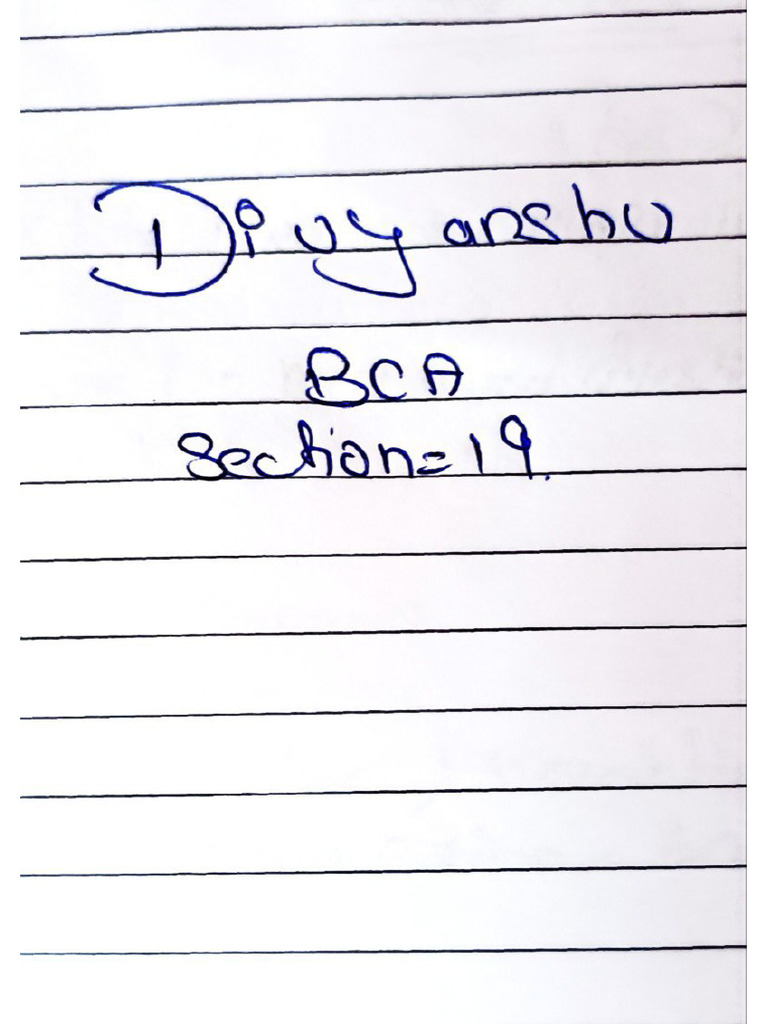 Divyanshu
BCA
Section=19.